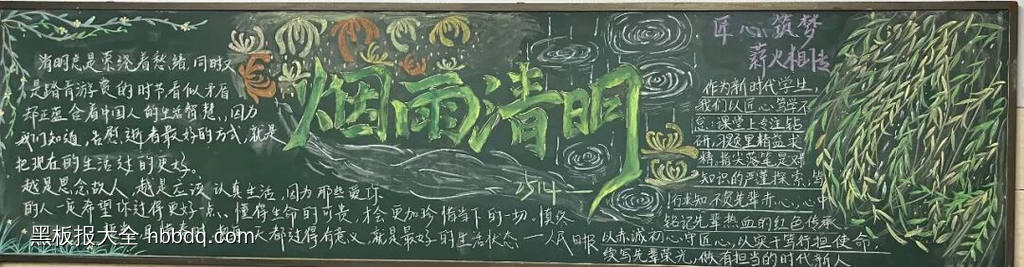 清明总是萦绕着愁绪,同时又
是踏青游赏的时节看似矛盾
却正蕴含着中国人的生活智慧、因为
我们知道,告慰逝者最好的方式,就是
把现在的生活过的更好。
越是思念故人,越是应该认真生活,因为那些爱你
的人一定希望你过得更好一点、懂得生命的可贵,才会更加珍惜当下的一切,慎终
天都过得有意义,就是最好的生活状态 — 人民日报
烟雨清明
2514
匠心筑梦
薪火相传
作为新时代学生,
我们以匠心笃学不
怠:课堂上专注钻
研,习题里精益求
精,指尖落笔是对
知识的严谨探索,笃
行求知,不负先辈赤心,心中
铭记先辈热血的红色传承
以赤诚初心守匠心,以实干笃行担使命,
续写先辈荣光,做有担当的时代新人
黑板报大全 hbbdq.com